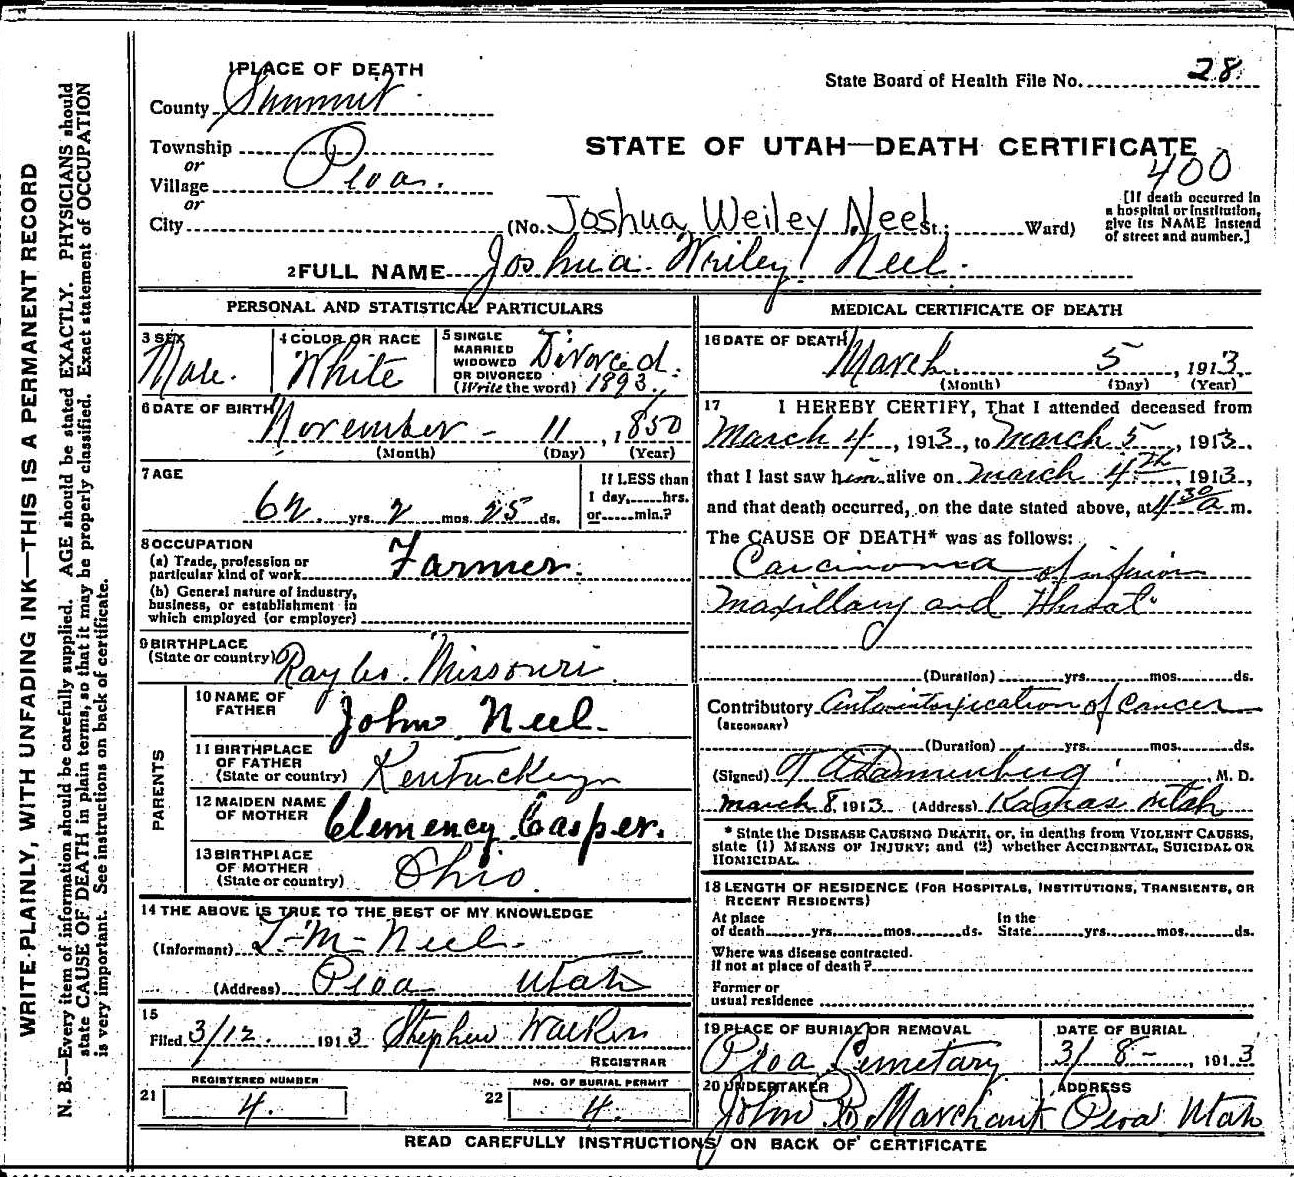 1 PLACE OF DEATH
State Board of Health File No. 28.
County Summit.
STATE OF UTAH—DEATH CERTIFICATE
400
Township
or
Village Peoa.
or
City (No. Joshua Weiley Neel St.; Ward)
[If death occurred in
a hospital or institution,
give its NAME instead
of street and number.]
2 FULL NAME Joshua Wriley Neel.
PERSONAL AND STATISTICAL PARTICULARS
3 SEX
Male.
4 COLOR OR RACE
White
5 SINGLE
MARRIED
WIDOWED
OR DIVORCED
(Write the word)
Divorced.
1893.
6 DATE OF BIRTH
November - 11, 1850
(Month) (Day) (Year)
7 AGE
62 yrs. 2 mos. 25 ds.
If LESS than
1 day,......hrs.
or......min.?
8 OCCUPATION
(a) Trade, profession or
particular kind of work Farmer.
(b) General nature of industry,
business, or establishment in
which employed (or employer)
9 BIRTHPLACE
(State or country) Ray Co. Missouri
PARENTS
10 NAME OF
FATHER John Neel.
11 BIRTHPLACE
OF FATHER
(State or country) Kentuckeyn
12 MAIDEN NAME
OF MOTHER Clemency Casper.
13 BIRTHPLACE
OF MOTHER
(State or country) Ohio.
14 THE ABOVE IS TRUE TO THE BEST OF MY KNOWLEDGE
(Informant) L-M-Neel.
(Address) Peoa Utah
15
Filed 3/12 1913 Stephen Walker
REGISTRAR
REGISTERED NUMBER
21 4.
NO. OF BURIAL PERMIT
22 4.
MEDICAL CERTIFICATE OF DEATH
16 DATE OF DEATH
March 5, 1913.
(Month) (Day) (Year)
17 I HEREBY CERTIFY, That I attended deceased from
March 4, 1913, to March 5, 1913.
that I last saw him alive on March 4th, 1913,
and that death occurred, on the date stated above, at 4 30 a m.
The CAUSE OF DEATH* was as follows:
Carcinoma of inferior
maxillary and throat.
(Duration) yrs. mos. ds.
Contributory Autointoxication of cancer
(SECONDARY)
(Duration) yrs. mos. ds.
(Signed) Dannenberg, M. D.
March 8 1913 (Address) Kamas Utah
* State the DISEASE CAUSING DEATH, or, in deaths from VIOLENT CAUSES,
state (1) MEANS OF INJURY; and (2) whether ACCIDENTAL, SUICIDAL OR
HOMICIDAL.
18 LENGTH OF RESIDENCE (FOR HOSPITALS, INSTITUTIONS, TRANSIENTS, OR
RECENT RESIDENTS)
At place
of death yrs. mos. ds.
In the
State yrs. mos. ds.
Where was disease contracted.
If not at place of death?
Former or
usual residence
19 PLACE OF BURIAL OR REMOVAL
Peoa Cemetary
DATE OF BURIAL
3/8-, 1913
20 UNDERTAKER
John B Marchant
ADDRESS
Peoa Utah
READ CAREFULLY INSTRUCTIONS ON BACK OF CERTIFICATE
WRITE PLAINLY, WITH UNFADING INK—THIS IS A PERMANENT RECORD
N. B.—Every item of information should be carefully supplied. AGE should be stated EXACTLY. PHYSICIANS should
state CAUSE OF DEATH in plain terms, so that it may be properly classified. Exact statement of OCCUPATION
is very important. See instructions on back of certificate.